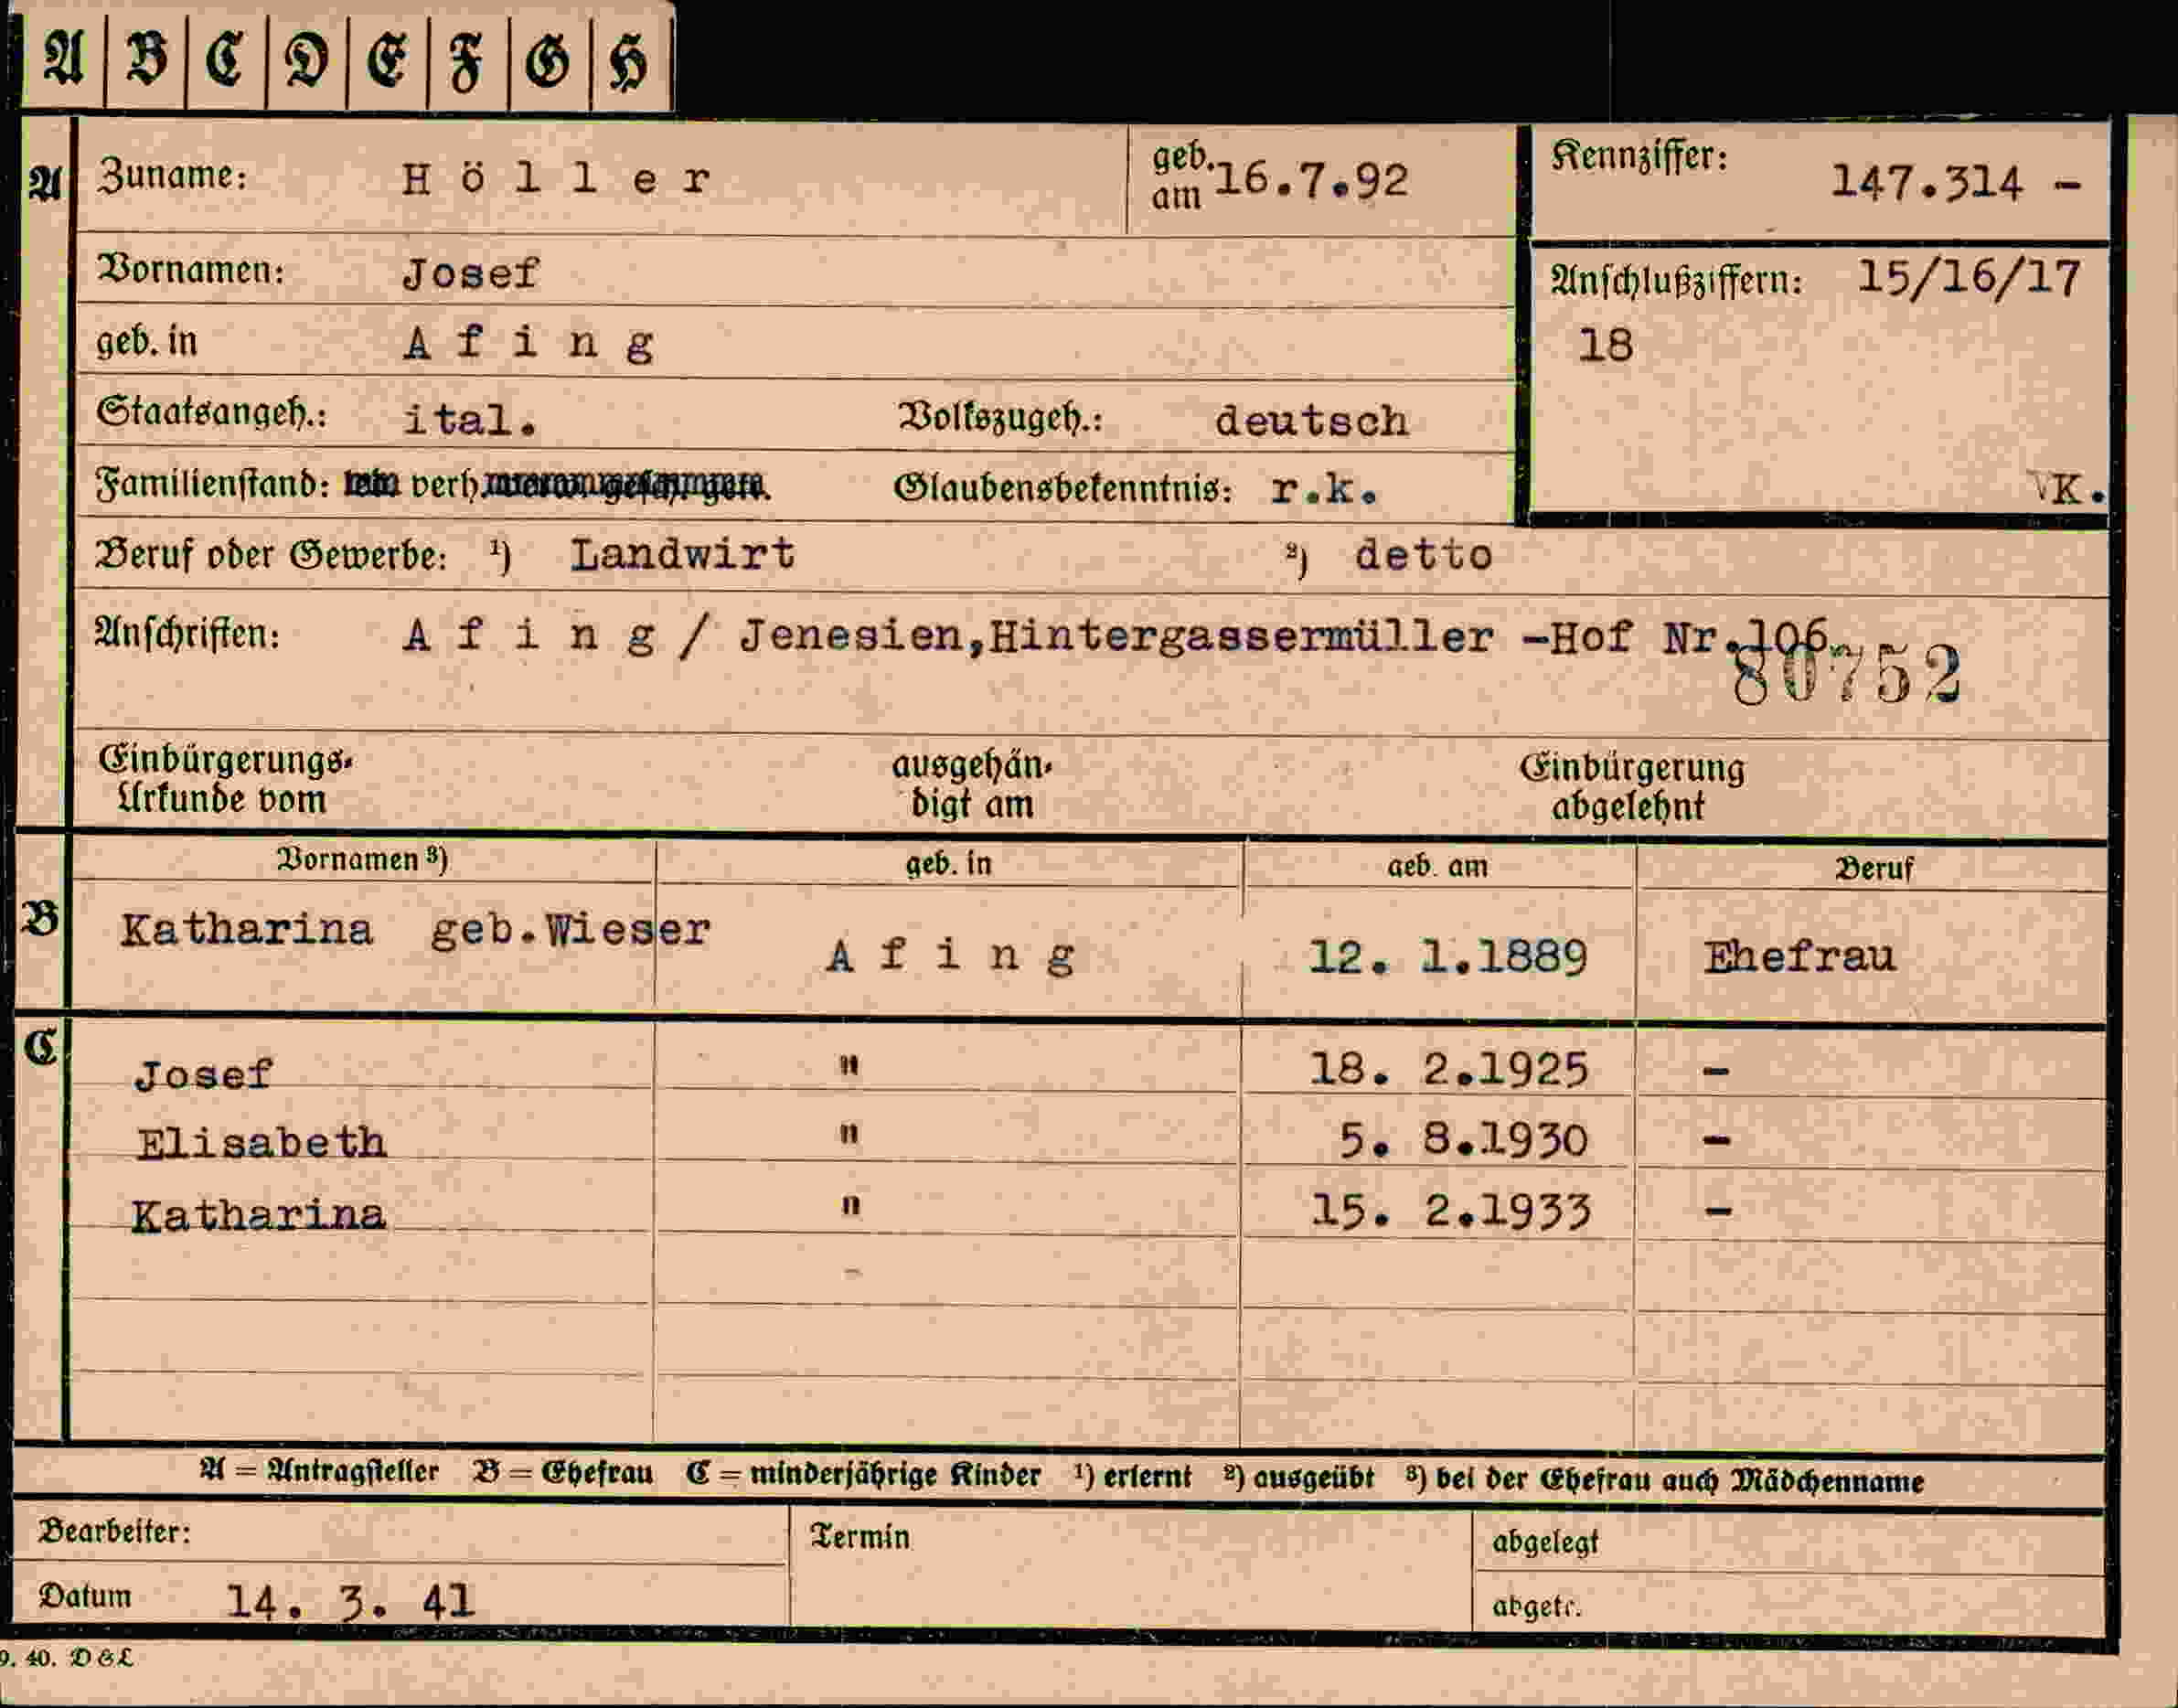 A B C D E F G H
A Zuname: H ö l l e r geb. am 16.7.92 Kennziffer: 147.314 -
Vornamen: Josef Anschlußziffern: 15/16/17
geb. in A f i n g 18
Staatsangeh.: ital. Volkszugeh.: deutsch
Familienstand: verh. Glaubensbekenntnis: r.k. K.
Beruf oder Gewerbe: ¹) Landwirt ²) detto
Anschriften: A f i n g / Jenesien,Hintergassermüller -Hof Nr.106
80752
Einbürgerungs- ausgehän- Einbürgerung
Urkunde vom digt am abgelehnt
Vornamen ³) geb. in geb. am Beruf
B Katharina geb.Wieser A f i n g 12. 1.1889 Ehefrau
C Josef " 18. 2.1925 -
Elisabeth " 5. 8.1930 -
Katharina " 15. 2.1933 -
A = Antragsteller B = Ehefrau C = minderjährige Kinder ¹) erlernt ²) ausgeübt ³) bei der Ehefrau auch Mädchenname
Bearbeiter: Termin abgelegt
Datum 14. 3. 41 abgetr.
9. 40. D & L